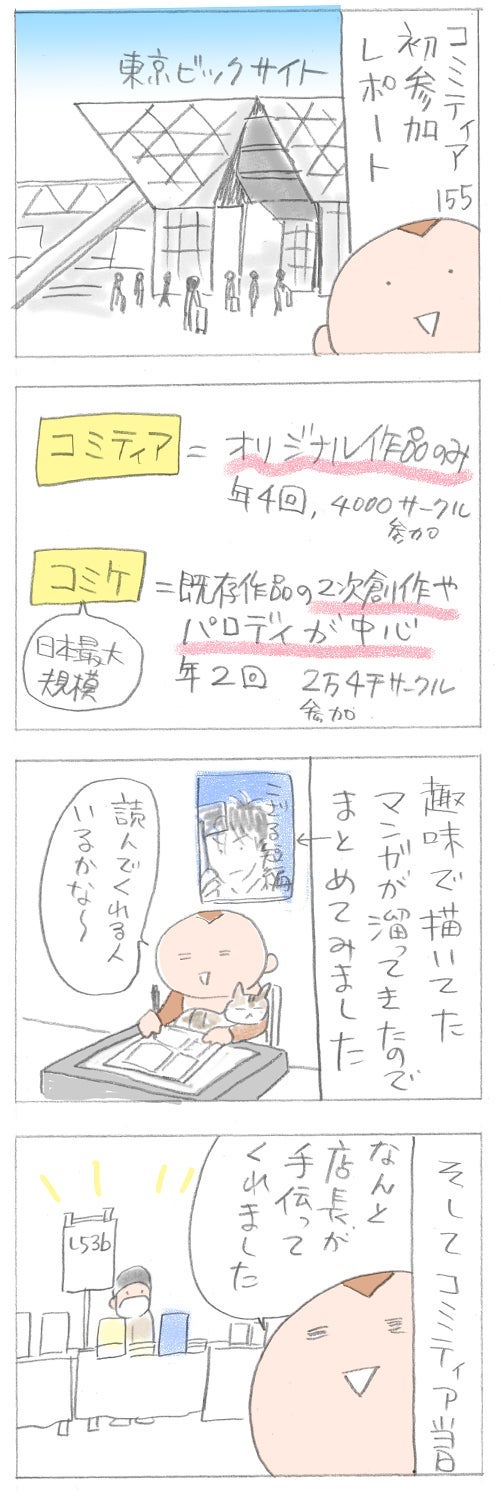 コミティア
155
初参加
レポート
東京ビックサイト
コミティア
=オリジナル作品のみ
年4回,4000サークル
参加
コミケ
=既存作品の2次創作や
パロディが中心
日本最大
規模
年2回 2万4千サークル
参加
趣味で描いてた
マンガが溜ってきたので
まとめてみました
こざる短編
読んでくれる人
いるかな～
そしてコミティア当日
なんと
店長が
手伝って
くれました
L53b